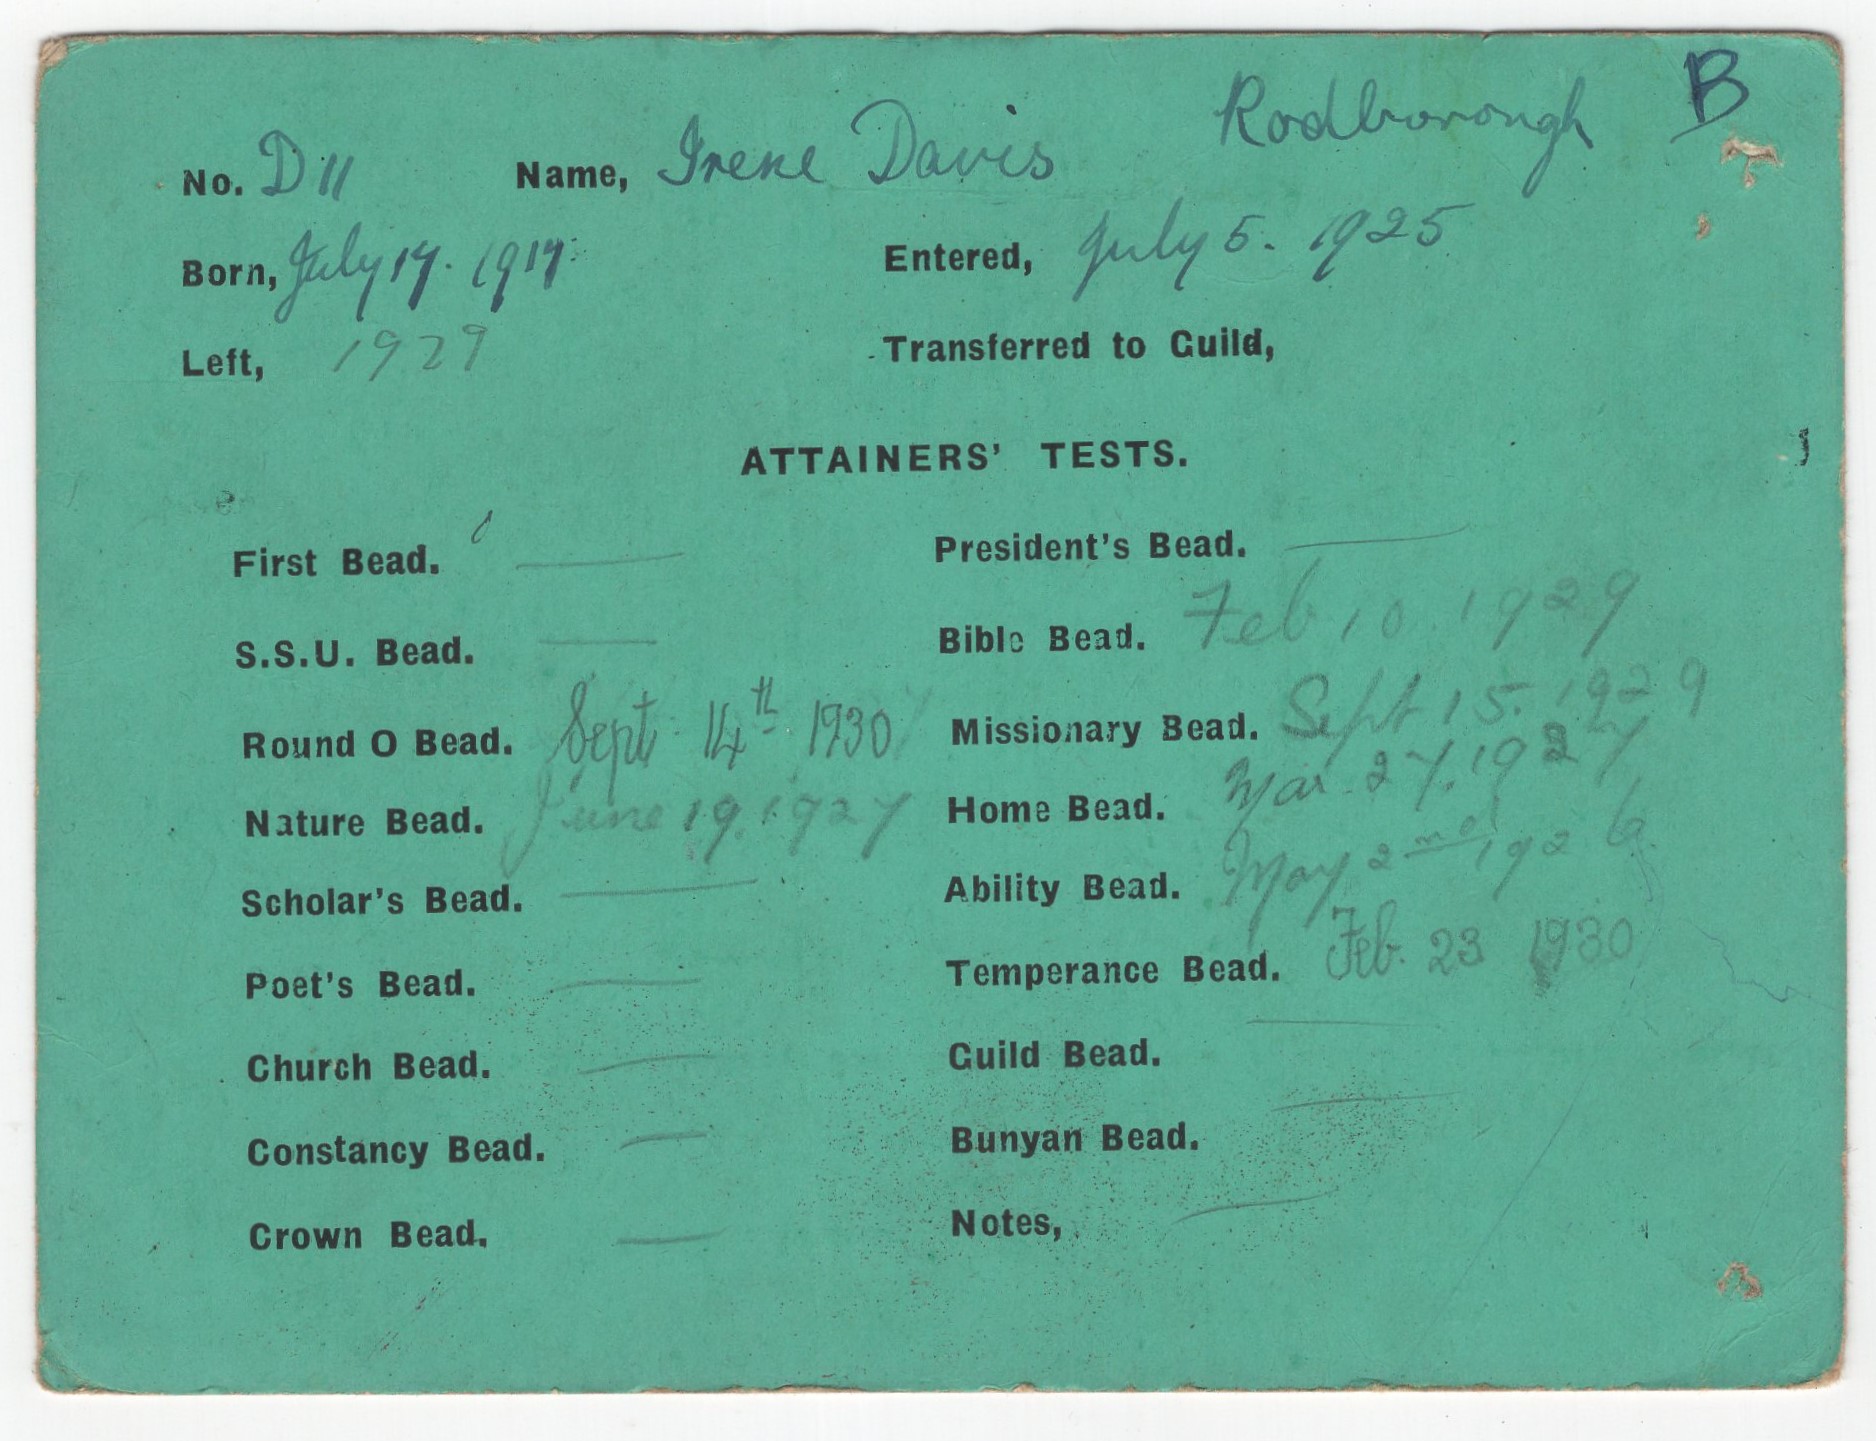 Rodborough B
No. D 11 Name, Irene Davis
Born, July 17. 1917. Entered, July 5. 1925
Left, 1929 Transferred to Guild,
ATTAINERS' TESTS.
First Bead. — President's Bead. —
S.S.U. Bead. — Bible Bead. Feb. 10. 1929
Round O Bead. Sept. 14th 1930 Missionary Bead. Sept 15. 1929
Nature Bead. June 19. 1927 Home Bead. Mar. 27. 1927
Scholar's Bead. — Ability Bead. May 2nd 1926.
Poet's Bead. — Temperance Bead. Feb. 23 1930
Church Bead. — Guild Bead. —
Constancy Bead. — Bunyan Bead. —
Crown Bead. — Notes, —